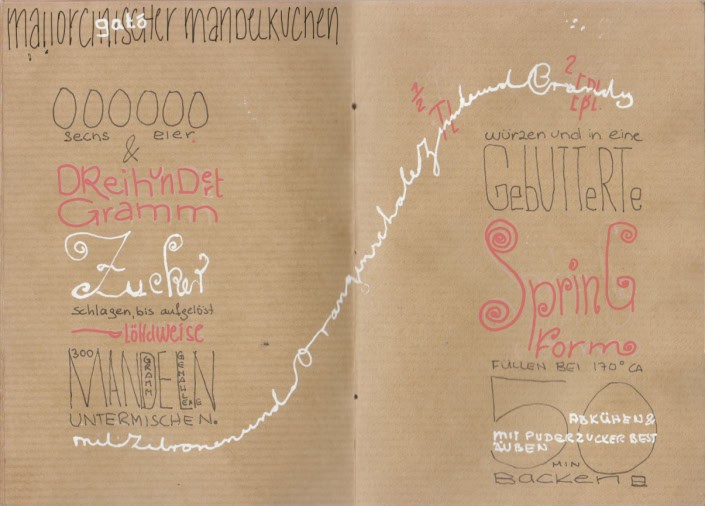 mallorcinischer mandelkuchen
gató
000000
sechs eier.
&
DReihunDert
Gramm
Zucker
schlagen, bis aufgelöst
löffelweise
300 MANDELN
GRAMM
GEMAHLENE
UNTERMISCHEN.
mit Zitronen und Orangenschale, Zimt und Brandy
1/2 TL
2 EßL.
würzen und in eine
GebUTTeRTe
SprinG
form
FÜLLEN BEI 170° CA
50
MIN
BACKEN
ABKÜHEN &
MIT PUDERZUCKER BEST
ÄUBEN